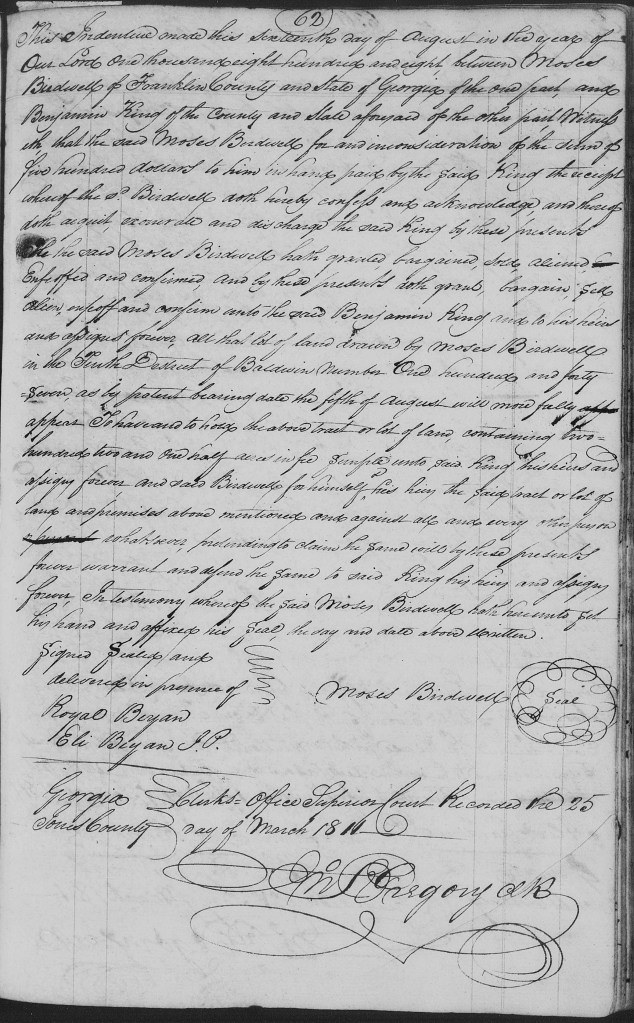 62
This Indenture made this sixteenth day of August in the year of
Our Lord One thousand eight hundred and eight between Moses
Birdwell of Franklin County and State of Georgia of the one part and
Benjamin King of the County and State aforesaid of the other part Witness
eth that the said Moses Birdwell for and in consideration of the sum of
five hundred dollars to him in hand paid by the said King the receipt
whereof the sd Birdwell doth hereby confess and acknowledge, and thereof
doth acquit, exonerate and discharge the said King by these presents
the said Moses Birdwell hath granted, bargained, sold, aliened,
Enfeoffed and confirmed, and by these presents doth grant, bargain, sell
alien, enfeoff and confirm unto the said Benjamin King and to his heirs
and assigns forever, all that lot of land drawn by Moses Birdwell
in the Tenth District of Baldwin number One hundred and forty
=seven, as by patent bearing date the fifth of August will more fully
appear To have and to hold the above tract or lot of land, containing two=
hundred two and one half acres in fee simple unto said King his heirs and
assigns forever and said Birdwell for himself his heirs the said tract or lot of
land and premises above mentioned and against all and every other person
whatsoever, pretending to claim the same will by these presents
forever warrant and defend the same to said King his heirs and assigns
forever, In testimony whereof the said Moses Birdwell hath hereunto set
his hand and affixed his seal, the day and date above written.
Signed Sealed and
delivered in presence of
Moses Birdwell Seal
Royal Bryan
Eli Bryan J.P.
Georgia Clerks Office Superior Court Recorded the 25
Jones County day of March 18
Gregory Clk